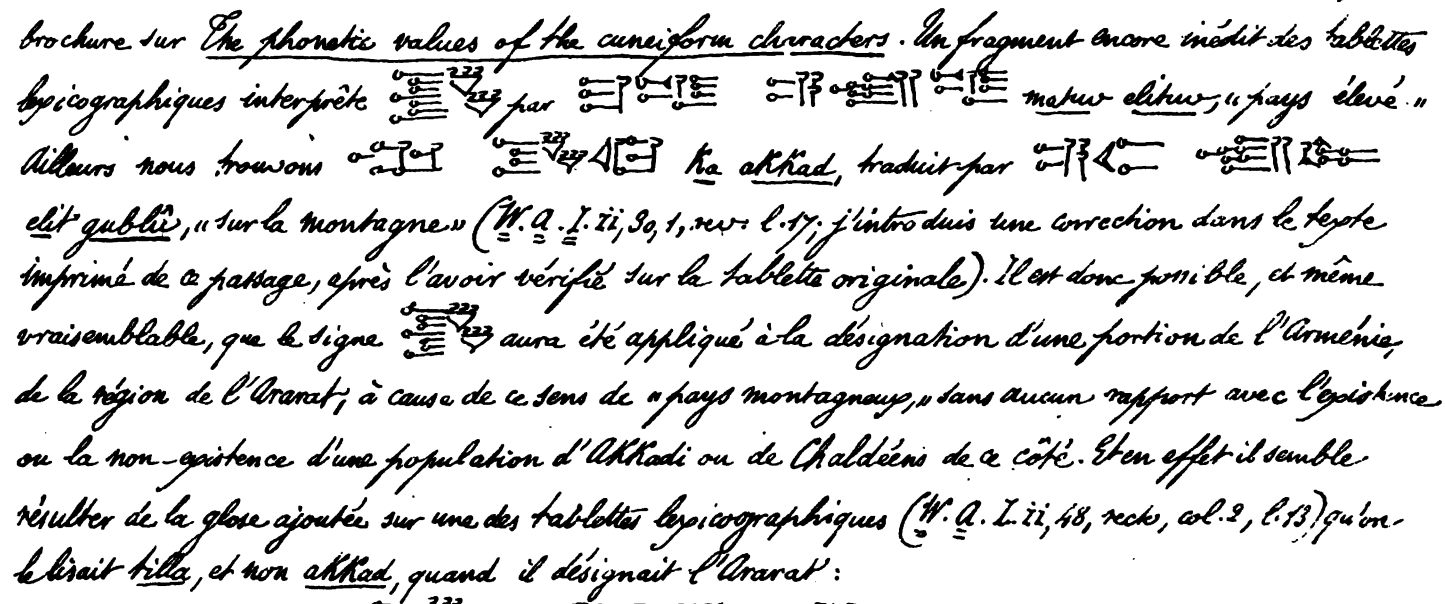 brochure sur The phonetic values of the cuneiform characters. Un fragment encore inédit des tablettes
lexicographiques interprête par matuv elituv, „ pays élevé „
Ailleurs nous trouvons Ka aKKad, traduit par
elit gublû, „ sur la montagne „ (W. A. I. ii, 30, 1, rev. l. 17; j'introduis une correction dans le texte
imprimé de ce passage, après l'avoir vérifié sur la tablette originale). Il est donc possible, et même
vraisemblable, que le signe aura été appliqué à la désignation d'une portion de l'Arménie,
de la région de l'Ararat, à cause de ce sens de „ pays montagneux, „ sans aucun rapport avec l'existence
ou la non-existence d'une population d'AKKadi ou de Chaldéens de ce côté. Et en effet il semble
résulter de la glose ajoutée sur une des tablettes lexicographiques (W. A. I. ii, 48, recto, col. 2, l. 13) qu'on
le lisait tilla, et non aKKad, quand il désignait l'Ararat :